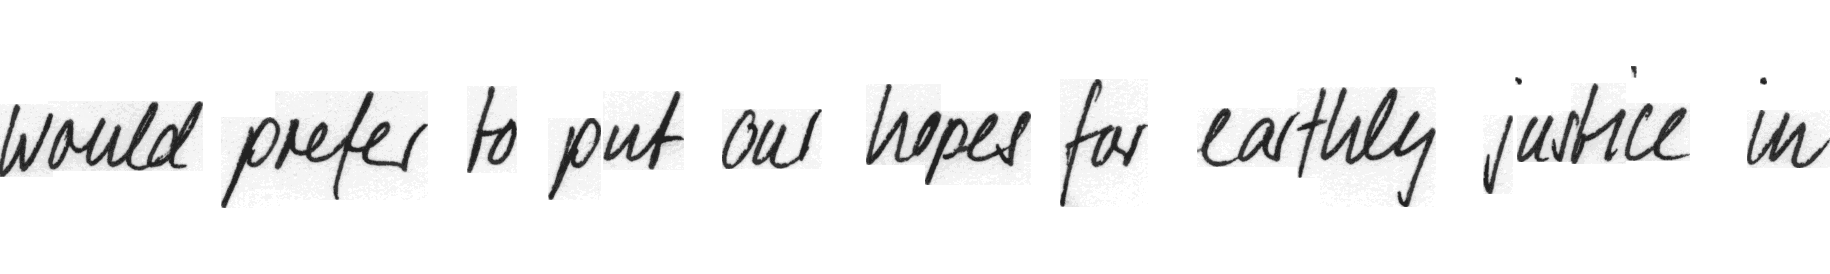 would prefer to put our hopes for earthly justice in